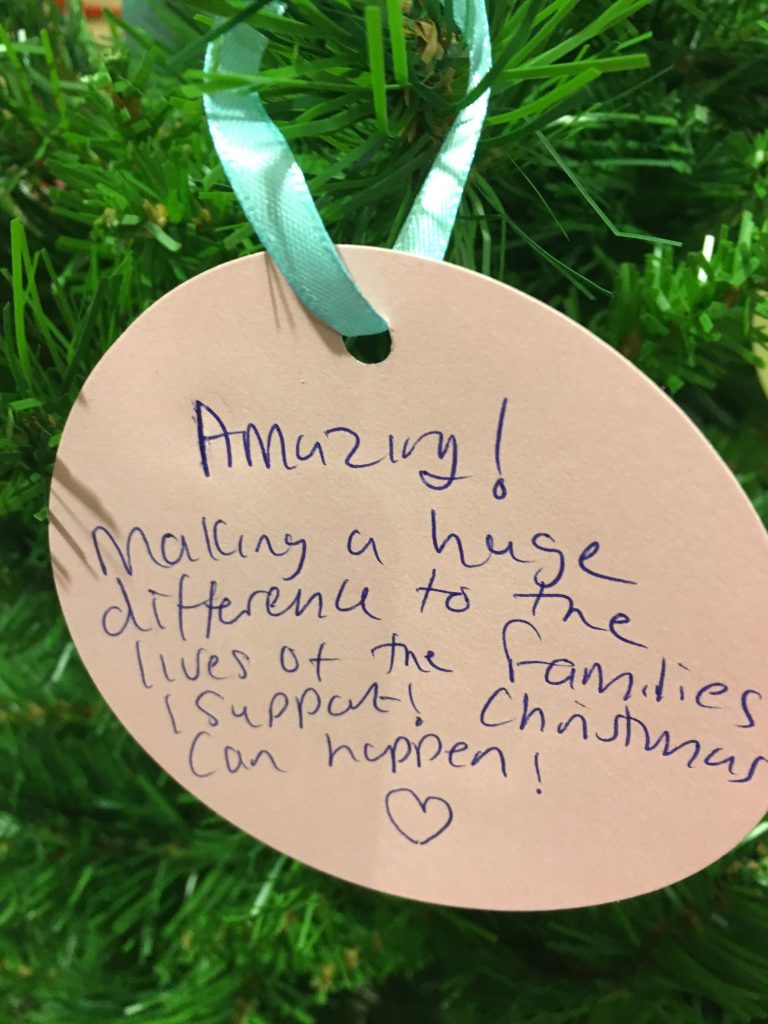 Amazing!
Making a huge
difference to the
lives of the families
I support! Christmas
Can happen!